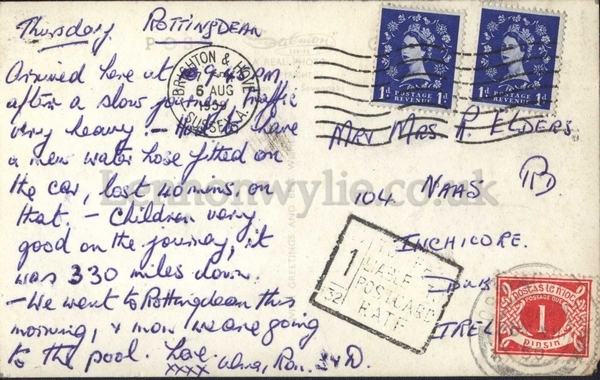 Thursday. ROTTINGDEAN
Arrived here at 9.45 PM,
after a slow journey, traffic
very heavy! - Had to have
a new water hose fitted on
the car, lost 40 mins, on
that. - Children very
good on the journey, it
was 330 miles down.
- We went to Rottingdean this
morning, & now we are going
to the pool. Love
xxxx Ron.
BRIGHTON & HOVE
6 AUG
1959
SUSSEX
1d POSTAGE REVENUE 1d
1d POSTAGE REVENUE 1d
Mr & Mrs P. ELDERS
104 NAAS RD
INCHICORE.
DUB
IRELAN
1
LIABLE
POSTCARD
RATE
32
POSTAGE DUE
1
PINSIN
GREETINGS AND
A REAL PHOTO
Lennonwylie.co.uk